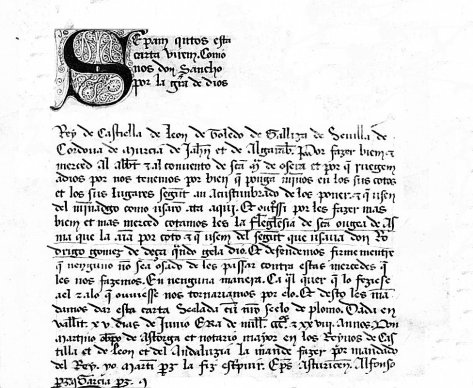 Sepam quitos esta
carta virem. Como
nos don Sancho
por la gra de dios
Rey de Castiella de Leon de Toledo de Gallizia de Sevilla de
Cordova de Murcia de Jahn et de Algarab. Por fazer bien et
merced Al abbt et al convento de sca Mª de osera et por q rueguem
adios por nos tenemos por bien q pongã miños en los sus cotos
et los sus lugares segunt an acustumbrado de los poner et q usen
del miñadgo como usarõ ata aqui. Et outssi por les fazer mas
bien et mas merced cotamos les la Eleglesia de sca ougea de As
ma que la aia por coto et q usem del segunt que usaua don Ro
drigo gomez de deça qndo gela dio. Et defendemos firme mientre
q nenguno nõ sea osado de les passar contra estas mercedes q
les nos fazemos. En nenguna manera. Ca ql quer q lo feziese
ael et alo q ouuiesse nos tornariamos por elo. Et desto les mã
damos dar esta carta Seelada cũ nro seelo de plomo. Dada en
vallit xv dias de Junio Era de mill ccc et xxviii. Annos. Don
Martino obpo de Astorga et notario mayor en los Reynos de Cas
tilla et de Leon et del Andaluzia la mande fazer por mandado
del Rey. yo marti prz la fiz escriuir. Eps Asturicen. Alfonso
prz Garcia prz.